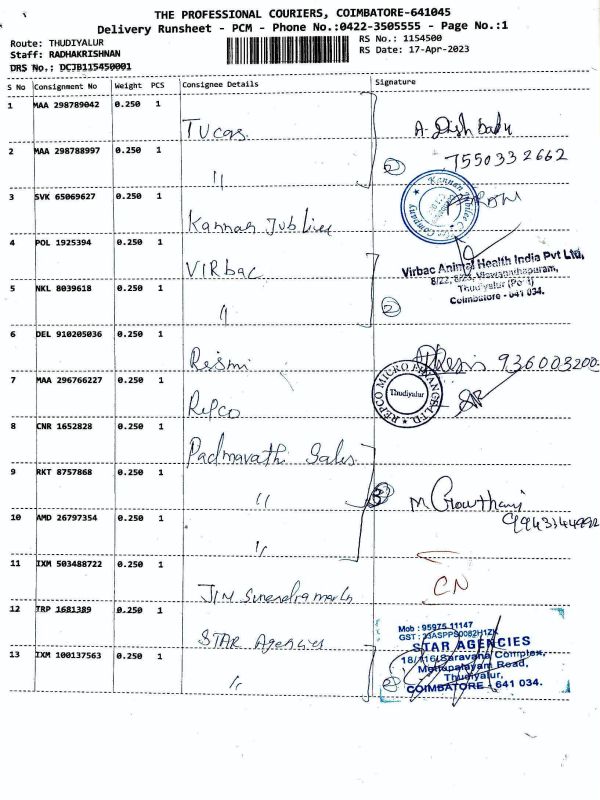 THE PROFESSIONAL COURIERS, COIMBATORE-641045
Delivery Runsheet - PCM - Phone No.:0422-3505555 - Page No.:1
Route: THUDIYALUR
RS No.: 1154500
Staff: RADHAKRISHNAN
RS Date: 17-Apr-2023
DRS No.: DCJB115450001
S No Consignment No Weight PCS Consignee Details Signature
1 MAA 298789042 0.250 1
Tucas
2 MAA 298788997 0.250 1
7550332662
2
"
3 SVK 65069627 0.250 1
Kannan Jubilee
4 POL 1925394 0.250 1
Virbac
Virbac Animal Health India Pvt Ltd,
8/22, 8/23, Viswanathapuram,
Thudiyalur (Post)
Coimbatore - 641 034.
5 NKL 8039618 0.250 1
"
2
6 DEL 910205036 0.250 1
Resmi
936003200
7 MAA 296766227 0.250 1
Repco
REPCO MICRO FINANCE LTD.
Thudiyalur
8 CNR 1652828 0.250 1
Padmavathi Sales
9 RKT 8757868 0.250 1
"
3
10 AMD 26797354 0.250 1
"
11 IXM 503488722 0.250 1
CN
12 TRP 1681389 0.250 1
STAR Agencies
Mob : 95975 11147
GST : 33ASPPS0082H1ZK
STAR AGENCIES
18/116, Saravana Complex,
Mettupalayam Road,
Thudiyalur,
COIMBATORE - 641 034.
13 IXM 100137563 0.250 1
"
2